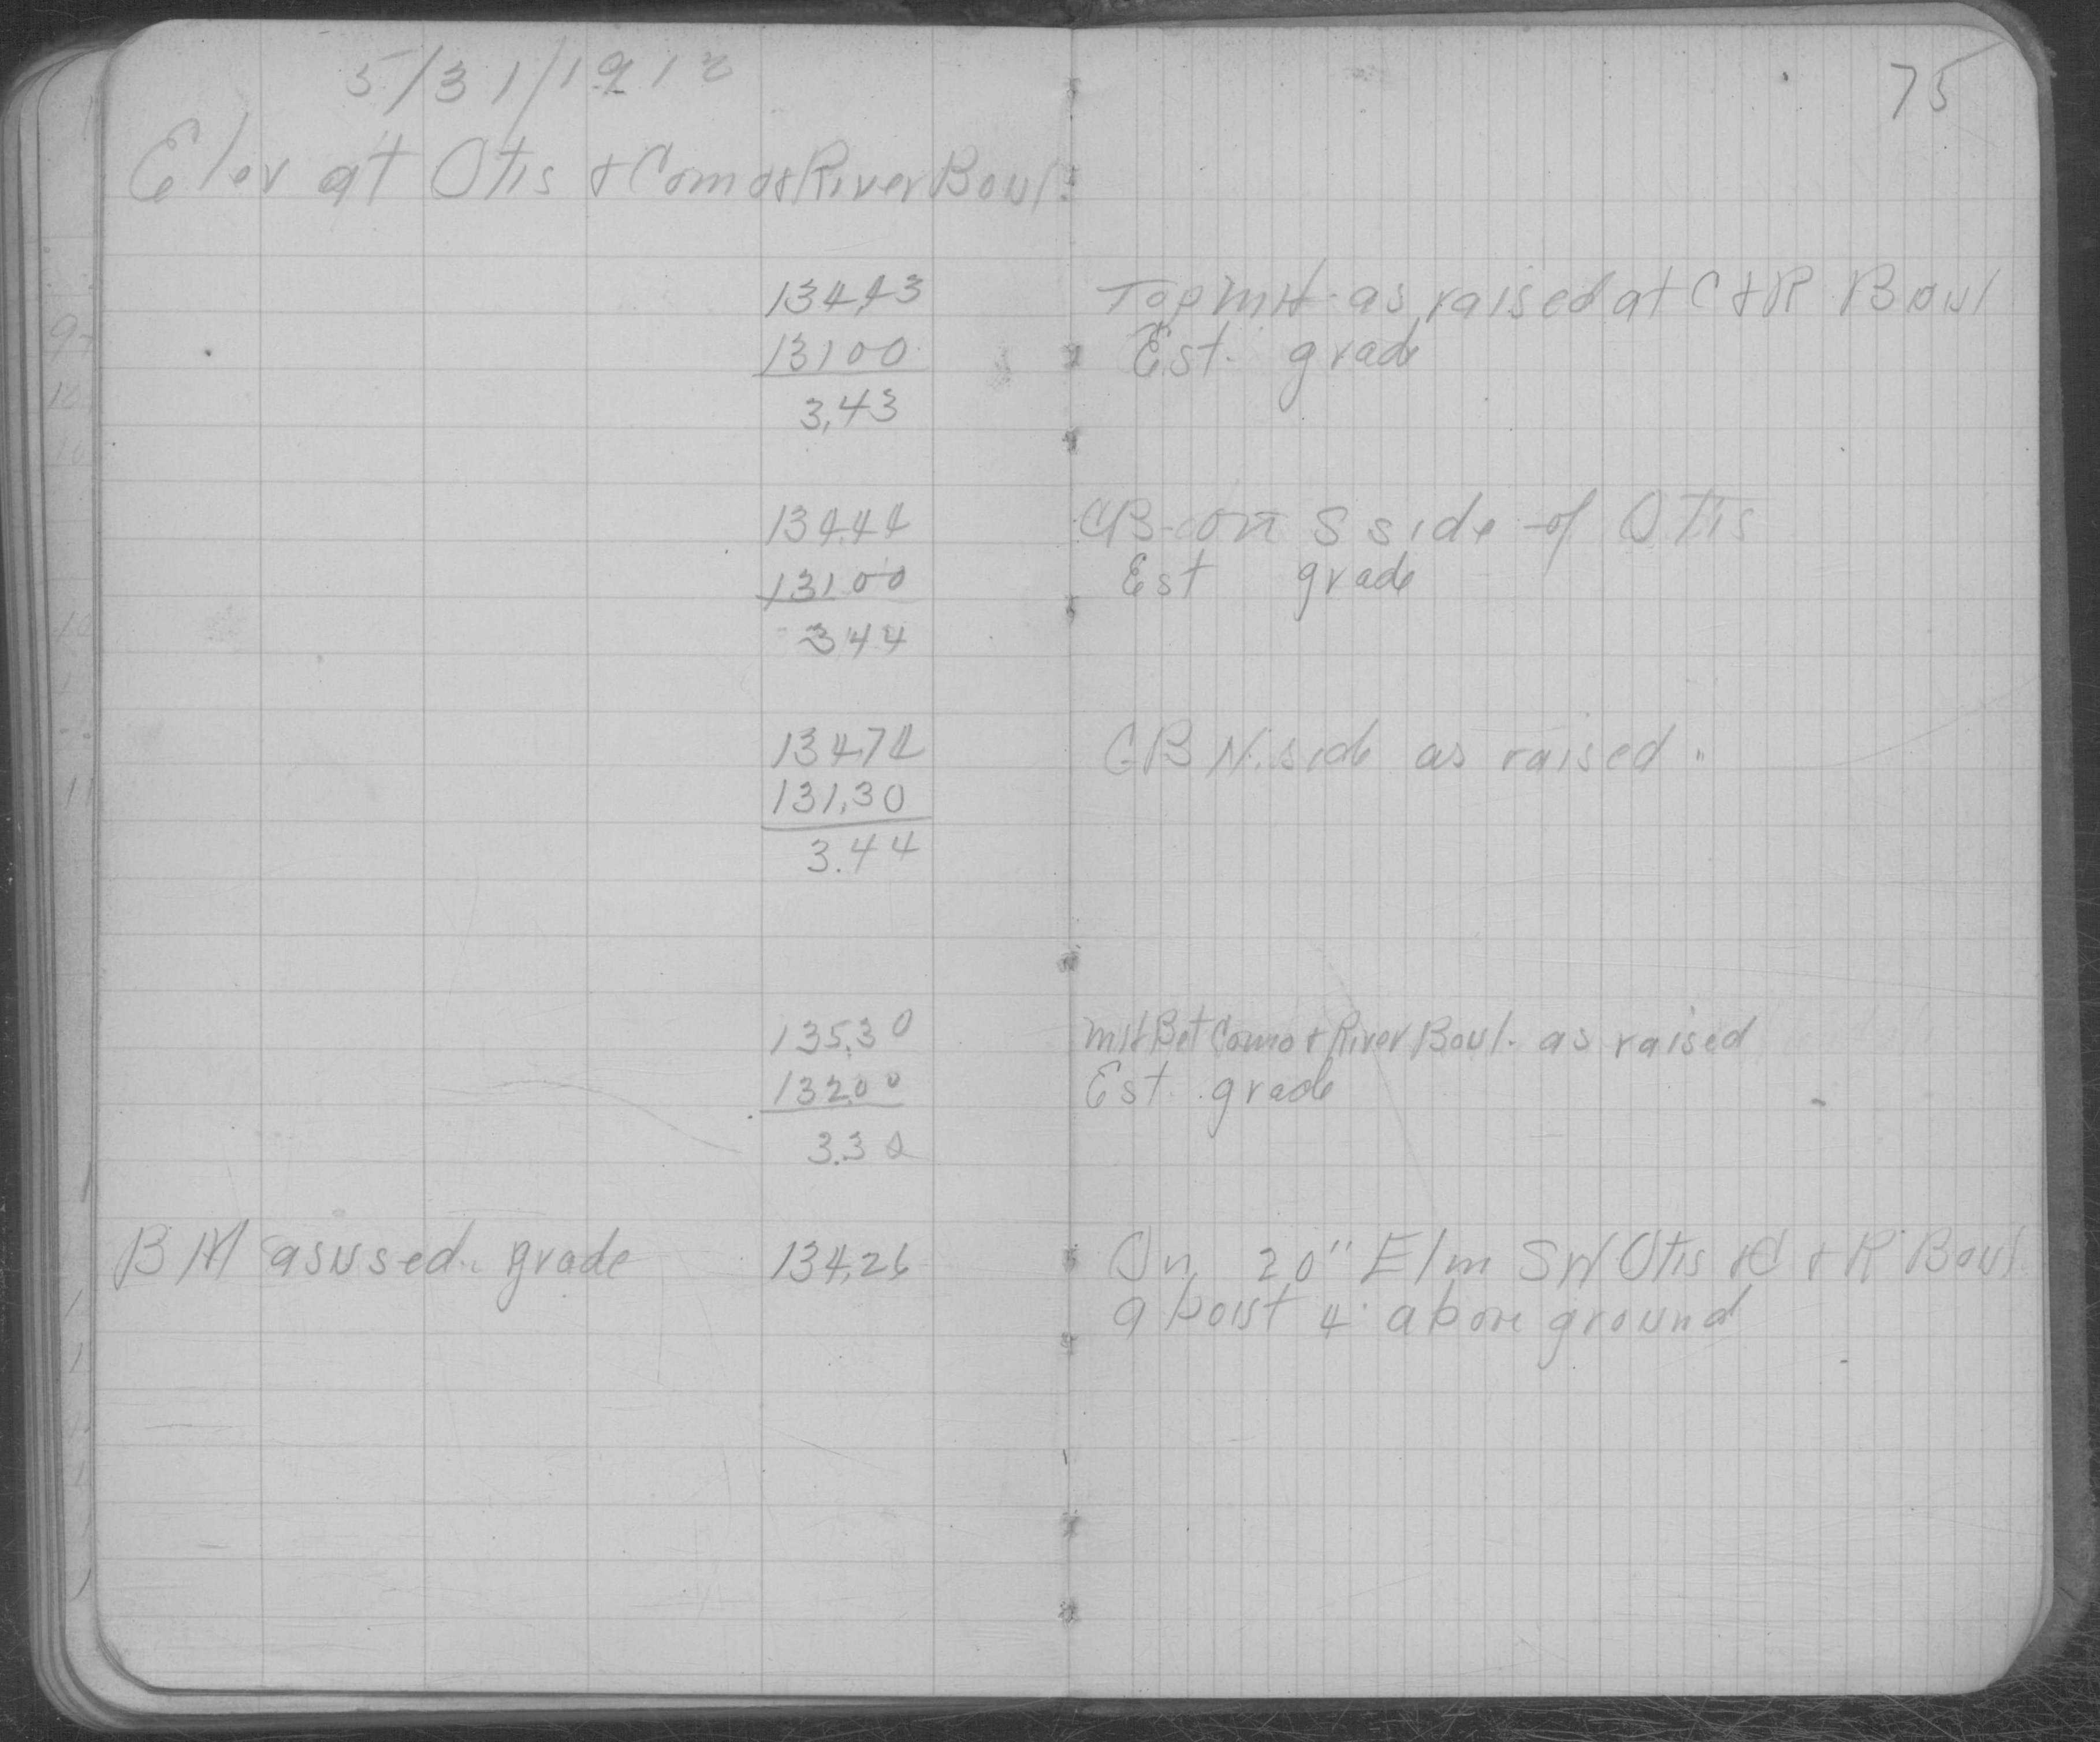 5/31/1912
75
Elev at Otis & Como & River Boul.
134.43 Top MH as raised at C & R Boul
131 00 Est. grade
3.43
134.44 CB on S side of Otis
131 00 Est grade
3 44
134.74 CB N. side as raised "
131.30
3.44
135.30 MH Bet Como & River Boul. as raised
132.00 Est. grade
3.30
BM as used grade 134.26 On 20" Elm SW Otis & C & R Boul
about 4' above ground